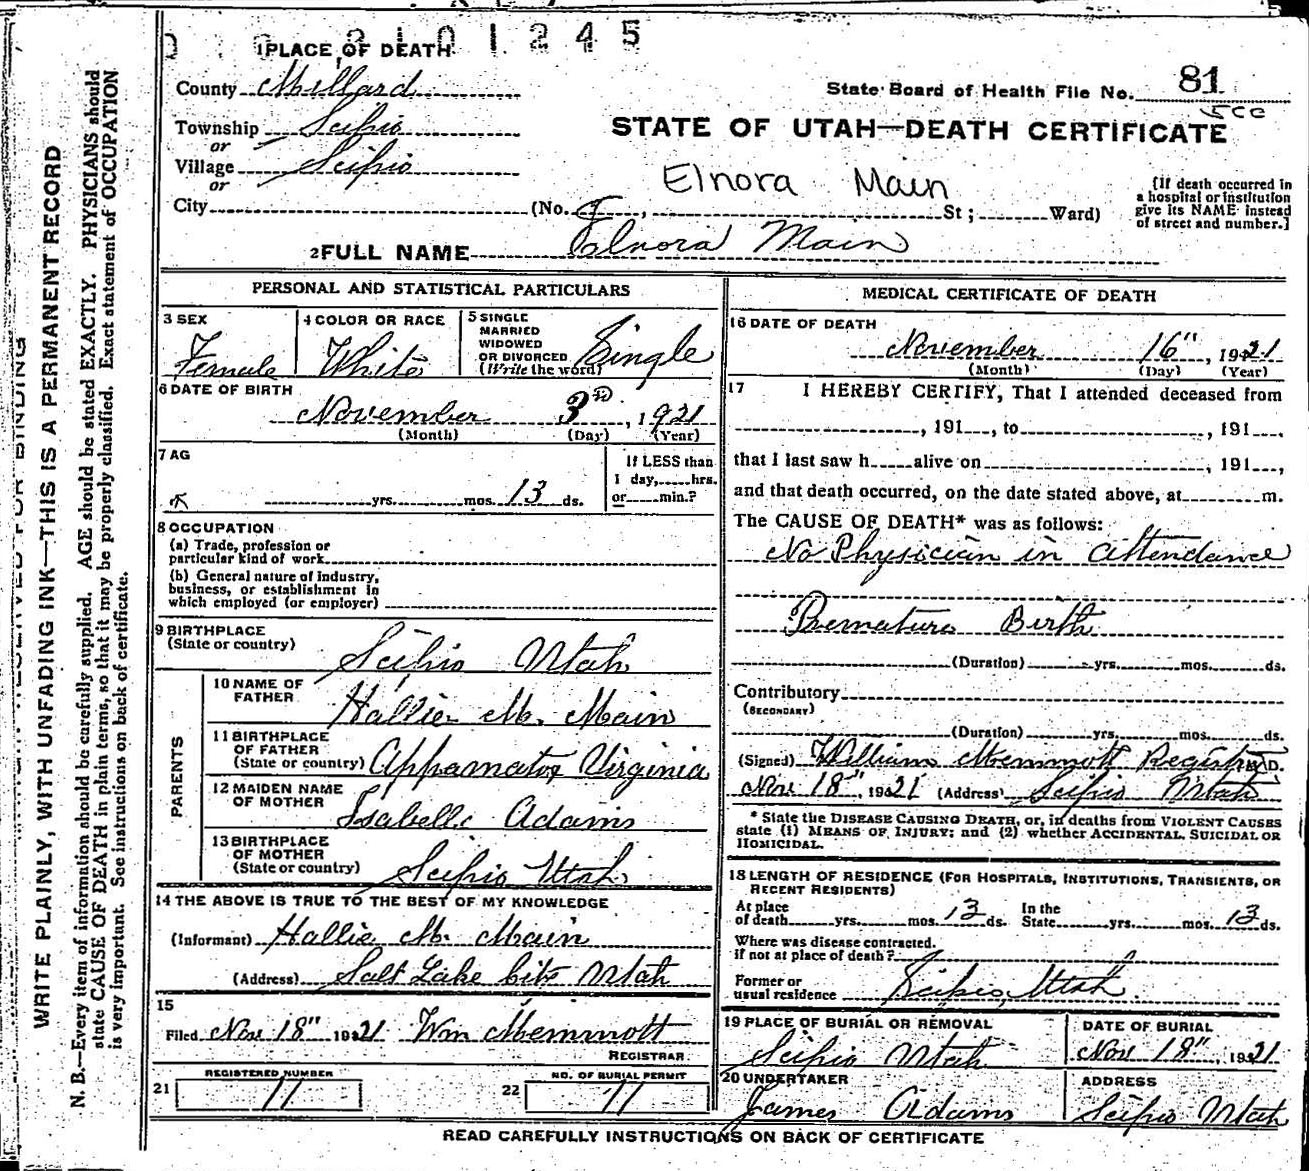 2101245
1 PLACE OF DEATH
County Millard
State Board of Health File No. 81
Township Scipio
or
Village Scipio
or
STATE OF UTAH—DEATH CERTIFICATE
Elnora Main
City (No. , St; Ward)
[If death occurred in
a hospital or institution
give its NAME instead
of street and number.]
2 FULL NAME Elnora Main
PERSONAL AND STATISTICAL PARTICULARS
3 SEX
Female
4 COLOR OR RACE
White
5 SINGLE
MARRIED
WIDOWED
OR DIVORCED
(Write the word)
Single
6 DATE OF BIRTH
November 3rd, 1921
(Month) (Day) (Year)
7 AG
yrs. mos. 13 ds.
If LESS than
1 day, hrs.
or min.?
8 OCCUPATION
(a) Trade, profession or
particular kind of work
(b) General nature of industry,
business, or establishment in
which employed (or employer)
9 BIRTHPLACE
(State or country)
Scipio Utah
PARENTS
10 NAME OF
FATHER
Hallie M. Main
11 BIRTHPLACE
OF FATHER
(State or country)
Appamatox Virginia
12 MAIDEN NAME
OF MOTHER
Isabell Adams
13 BIRTHPLACE
OF MOTHER
(State or country)
Scipio Utah
14 THE ABOVE IS TRUE TO THE BEST OF MY KNOWLEDGE
(Informant) Hallie M. Main
(Address) Salt Lake City Utah
15
Filed Nov 18" 1921 Wm Memmott
REGISTRAR
21 REGISTERED NUMBER
11
22 NO. OF BURIAL PERMIT
11
MEDICAL CERTIFICATE OF DEATH
16 DATE OF DEATH
November 16", 1921
(Month) (Day) (Year)
17 I HEREBY CERTIFY, That I attended deceased from
, 191 , to , 191 ,
that I last saw h alive on , 191 ,
and that death occurred, on the date stated above, at m.
The CAUSE OF DEATH* was as follows:
No Physician in attendance
Premature Birth
(Duration) yrs. mos. ds.
Contributory
(SECONDARY)
(Duration) yrs. mos. ds.
(Signed) William Memmott Registrar M.D.
Nov 18", 1921 (Address) Scipio Utah
* State the DISEASE CAUSING DEATH, or, in deaths from VIOLENT CAUSES
state (1) MEANS OF INJURY; and (2) whether ACCIDENTAL, SUICIDAL OR
HOMICIDAL.
18 LENGTH OF RESIDENCE (FOR HOSPITALS, INSTITUTIONS, TRANSIENTS, OR
RECENT RESIDENTS)
At place
of death yrs. mos. 13 ds.
In the
State yrs. mos. 13 ds.
Where was disease contracted.
if not at place of death?
Former or
usual residence Scipio, Utah.
19 PLACE OF BURIAL OR REMOVAL
Scipio Utah
DATE OF BURIAL
Nov 18", 1921
20 UNDERTAKER
James Adams
ADDRESS
Scipio Utah
READ CAREFULLY INSTRUCTIONS ON BACK OF CERTIFICATE
RESERVED FOR BINDING
WRITE PLAINLY, WITH UNFADING INK—THIS IS A PERMANENT RECORD
N. B.—Every item of information should be carefully supplied. AGE should be stated EXACTLY. PHYSICIANS should
state CAUSE OF DEATH in plain terms, so that it may be properly classified. Exact statement of OCCUPATION
is very important. See instructions on back of certificate.